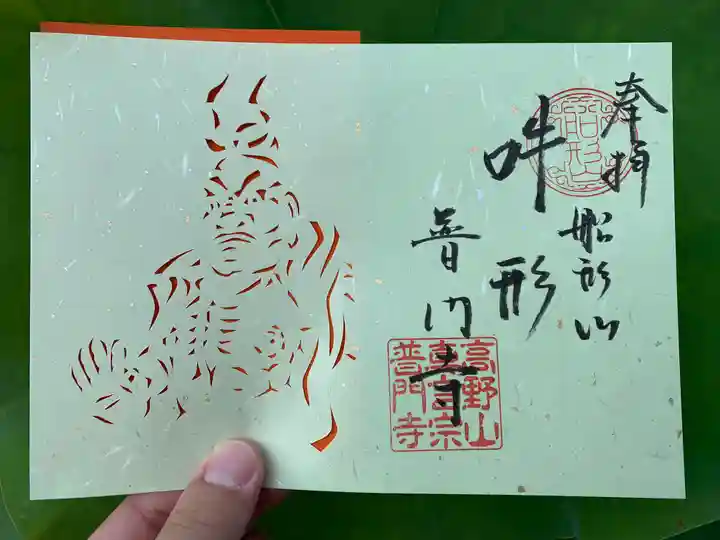 奉拝
船形山
吽形
普門寺
船形山
高野山
真言宗
普門寺